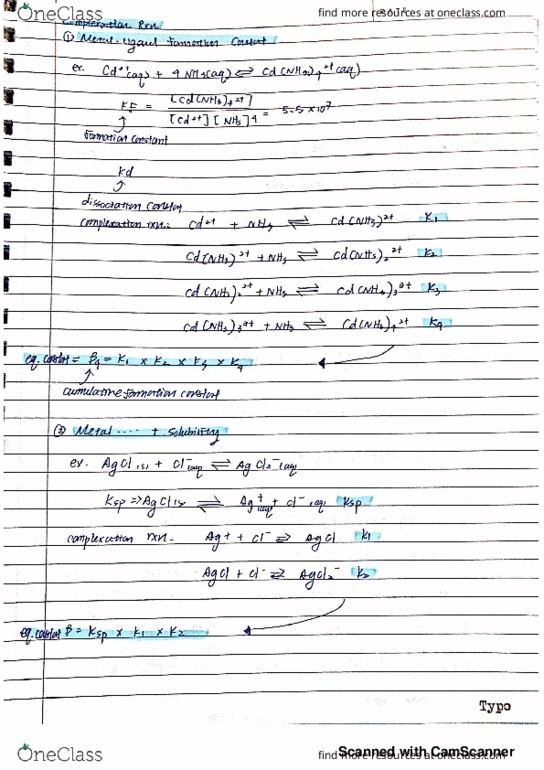 OneClass
find more resources at oneclass.com
Complexation Rxn
① Metal-Ligand Formation Constant
ex. Cd²⁺(aq) + 4 NH₃(aq) ⇌ Cd(NH₃)₄²⁺(aq)
Kf = [Cd(NH₃)₄²⁺] / [Cd²⁺][NH₃]⁴ = 5.5 × 10⁷
formation constant
Kd
dissociation constant
complexation rxn: Cd²⁺ + NH₃ ⇌ Cd(NH₃)²⁺ K₁
Cd(NH₃)²⁺ + NH₃ ⇌ Cd(NH₃)₂²⁺ K₂
Cd(NH₃)₂²⁺ + NH₃ ⇌ Cd(NH₃)₃²⁺ K₃
Cd(NH₃)₃²⁺ + NH₃ ⇌ Cd(NH₃)₄²⁺ K₄
eq. constant = β₄ = K₁ × K₂ × K₃ × K₄
cumulative formation constant
② Metal .... + solubility
ex. AgCl(s) + Cl⁻(aq) ⇌ AgCl₂⁻(aq)
Ksp => AgCl(s) ⇌ Ag⁺(aq) + Cl⁻(aq) Ksp
complexation rxn. Ag⁺ + Cl⁻ ⇌ AgCl K₁
AgCl + Cl⁻ ⇌ AgCl₂⁻ K₂
eq. constant β = Ksp × K₁ × K₂
Typo
Scanned with CamScanner
OneClass
find more resources at oneclass.com